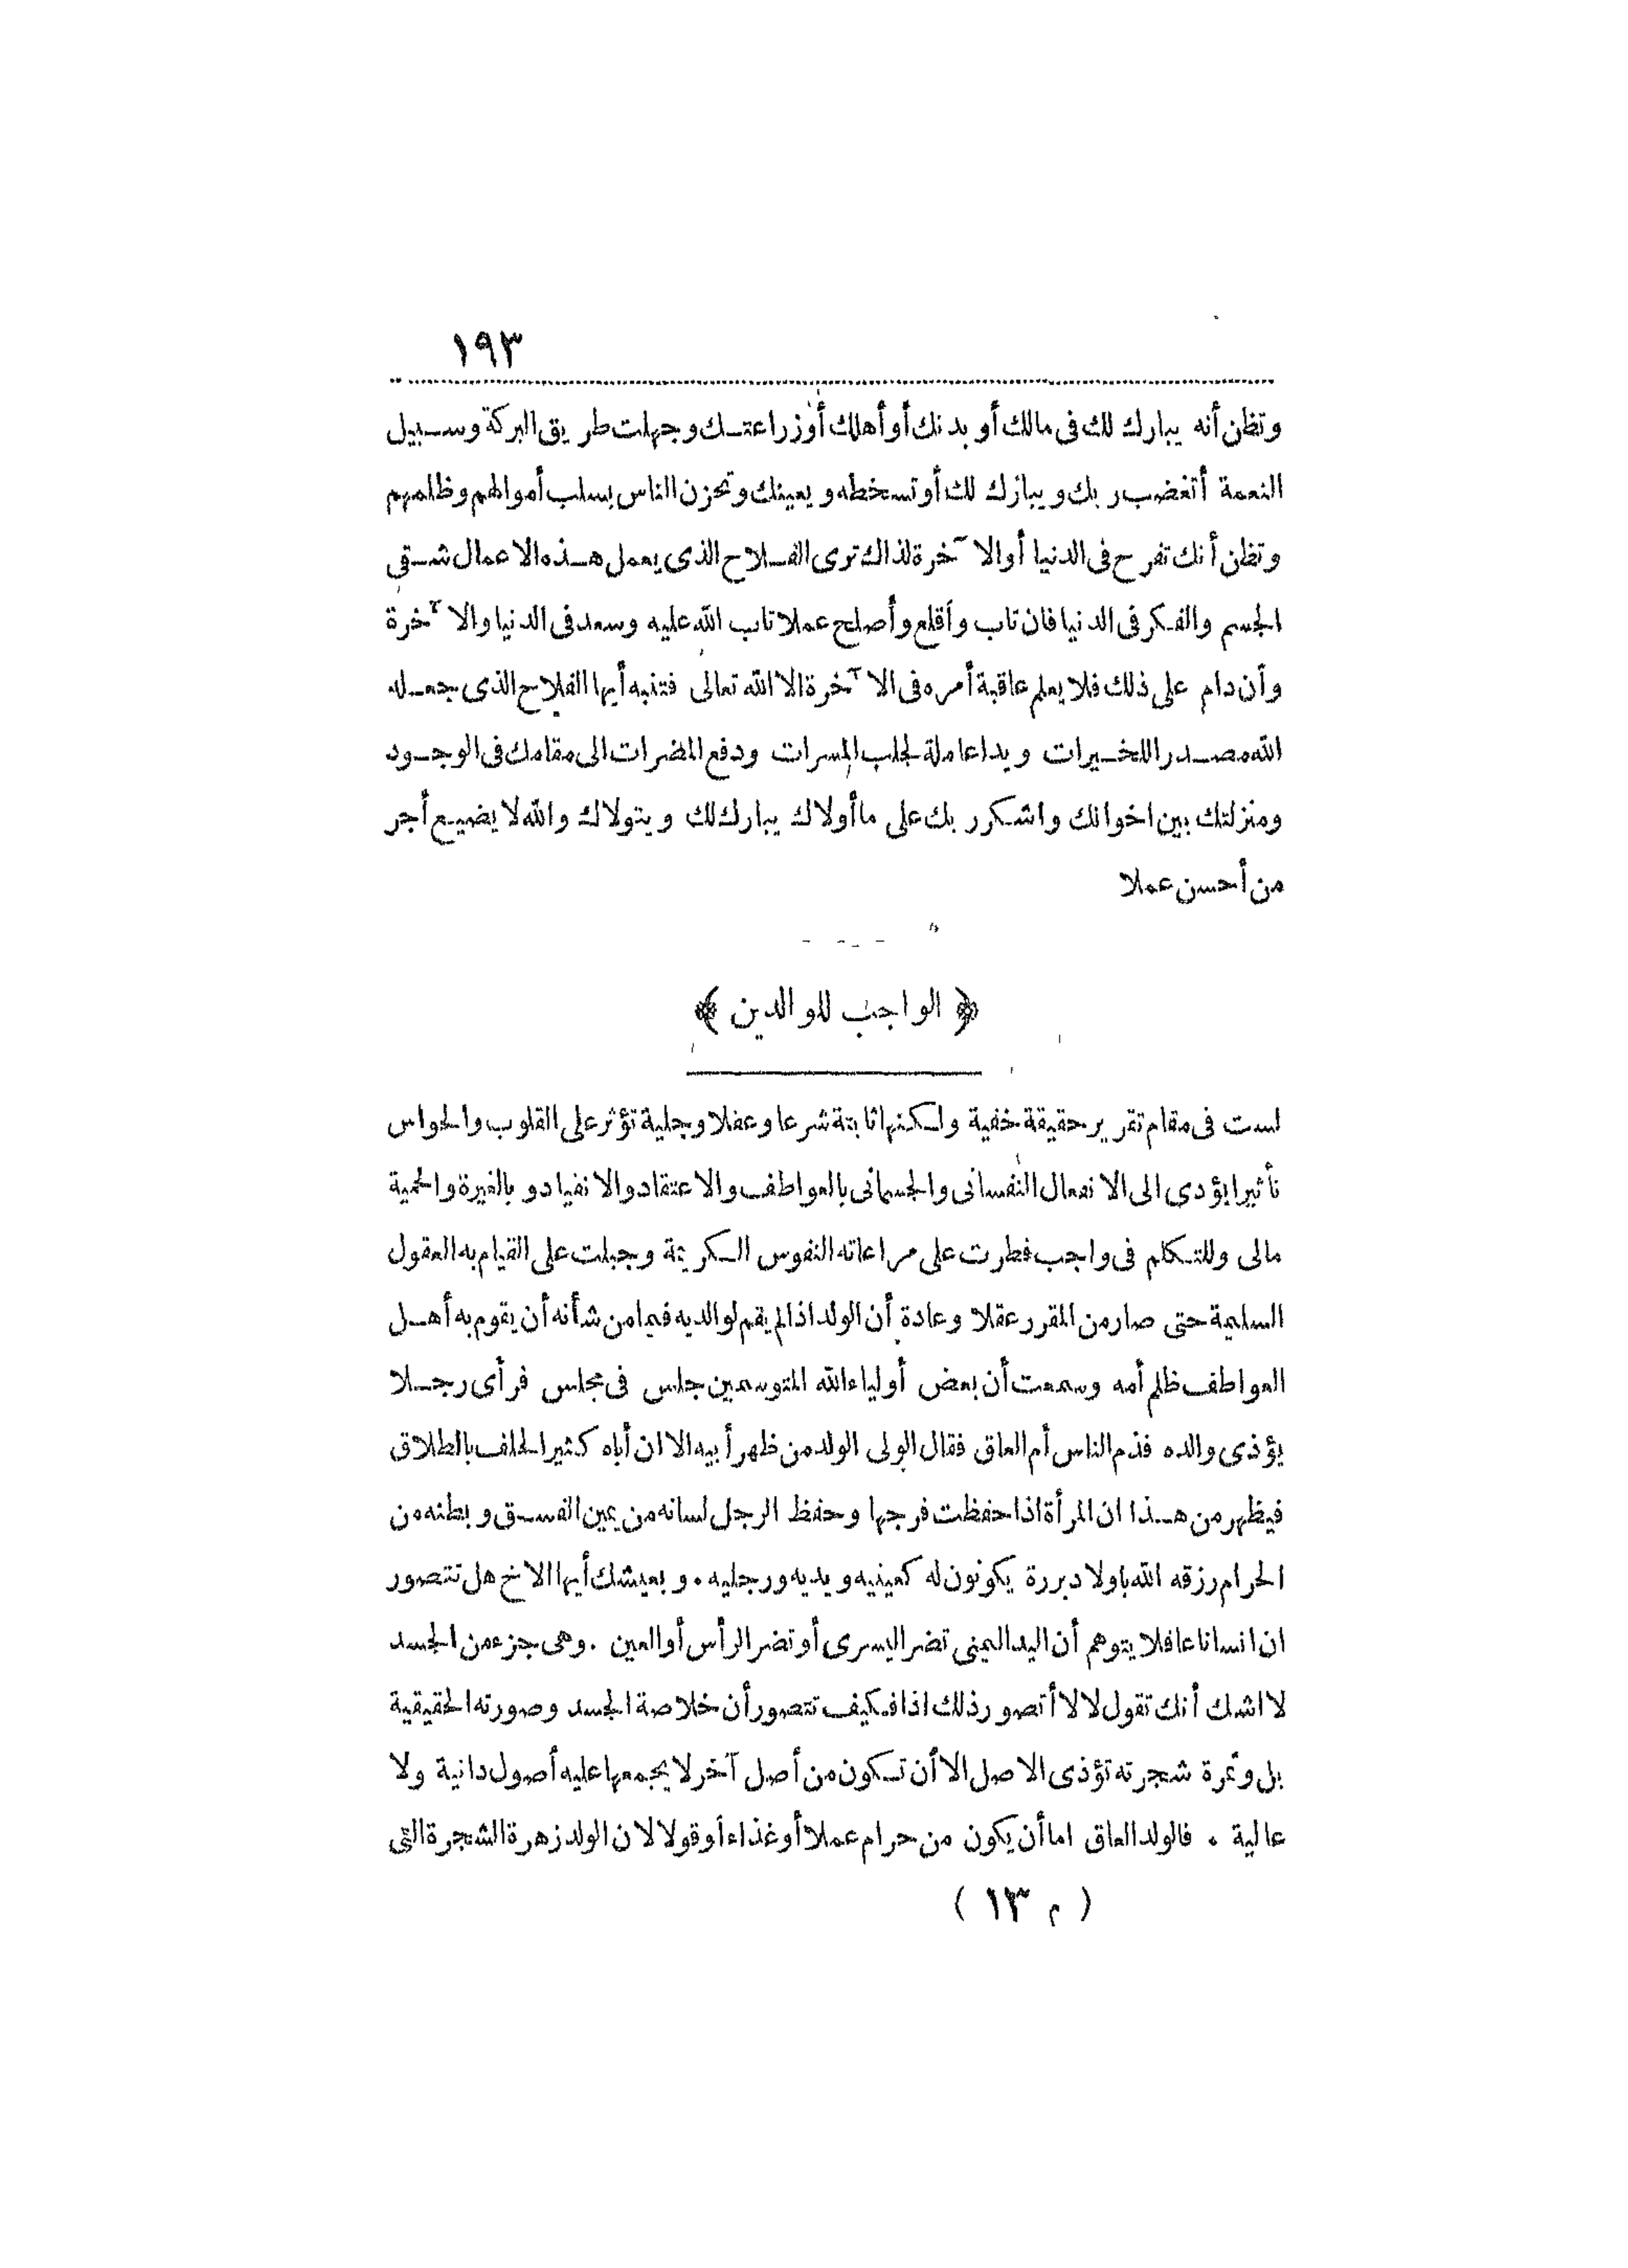 ١٩٣
وتظن أنه يبارك لك فى مالك أو بدنك أو أهلك أو زراعتك وجهلت طريق البركة وسبيل
النعمة أتغضب ربك ويبارك لك أو تسخطه ويعينك وتحزن الناس بسلب أموالهم وظلمهم
وتظن أنك تفرح فى الدنيا أو الآخرة لذاك ترى الفلاح الذى يعمل هذه الاعمال شقى
الجسم والفكر فى الدنيا فان تاب وأقلع وأصلح عملا تاب الله عليه وسعد فى الدنيا والآخرة
وأن دام على ذلك فلا يعلم عاقبة أمره فى الآخرة الا الله تعالى فتنبه أيها الفلاح الذى جعله
الله مصدرا للخيرات ويدا عاملة لجلب المسرات ودفع المضرات الى مقامك فى الوجود
ومنزلتك بين اخوانك واشكر ربك على ما أولاك يبارك لك ويتولاك والله لا يضيع أجر
من أحسن عملا
﴿ الواجب للوالدين ﴾
لست فى مقام تقرير حقيقة خفية ولكنها ثابتة شرعا وعقلا وجلية تؤثر على القلوب والحواس
تأثيرا يؤدى الى الانفعال النفسانى والجسمانى بالعواطف والاعتقاد والانقياد و بالغيرة والحمية
مالى وللتكلم فى واجب فطرت على مراعاته النفوس الكريمة وجبلت على القيام به العقول
السليمة حتى صار من المقرر عقلا وعادة أن الولد اذا لم يقم لوالديه فيما من شأنه أن يقوم به أهل
العواطف ظلم أمه وسمعت أن بعض أولياء الله المتوسمين جلس فى مجلس فرأى رجلا
يؤذى والده فذم الناس أم العاق فقال الولى الولد من ظهر أبيه الا ان أباه كثير الحلف بالطلاق
فيظهر من هذا ان المرأة اذا حفظت فرجها وحفظ الرجل لسانه من يمين الفسق وبطنه من
الحرام رزقه الله باولاد بررة يكونون له كعينيه ويديه ورجليه . وبعيشك أيها الاخ هل تتصور
ان انسانا عاقلا يتوهم أن اليد اليمنى تضر اليسرى أو تضر الرأس أو العين . وهى جزء من الجسد
لا اشك أنك تقول لا لا أتصور ذلك اذا فكيف تتصور أن خلاصة الجسد وصورته الحقيقية
بل وثمرة شجرته تؤذى الاصل الا أن تكون من أصل آخر لا يجمعها عليه أصول دانية ولا
عالية . فالولد العاق اما أن يكون من حرام عملا أو غذاء أو قولا لان الولد زهرة الشجرة التى
( م ١٣ )